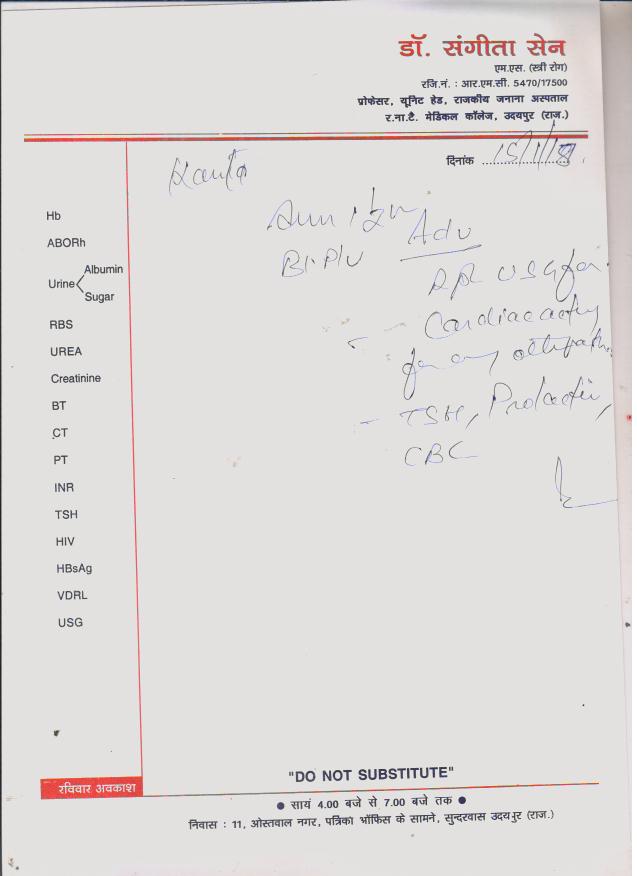 डॉ. संगीता सेन
एम.एस. (स्त्री रोग)
रजि.नं. : आर.एम.सी. 5470/17500
प्रोफेसर, यूनिट हेड, राजकीय जनाना अस्पताल
र.ना.टै. मेडिकल कॉलेज, उदयपुर (राज.)
दिनांक 15/1/18
Kanta
Adv
USG for
Cardiac activity
for any
- TSH, Prolactin,
CBC
Hb
ABORh
Urine Albumin
Sugar
RBS
UREA
Creatinine
BT
CT
PT
INR
TSH
HIV
HBsAg
VDRL
USG
"DO NOT SUBSTITUTE"
रविवार अवकाश
● सायं 4.00 बजे से 7.00 बजे तक ●
निवास : 11, ओस्तवाल नगर, पत्रिका ऑफिस के सामने, सुन्दरवास उदयपुर (राज.)